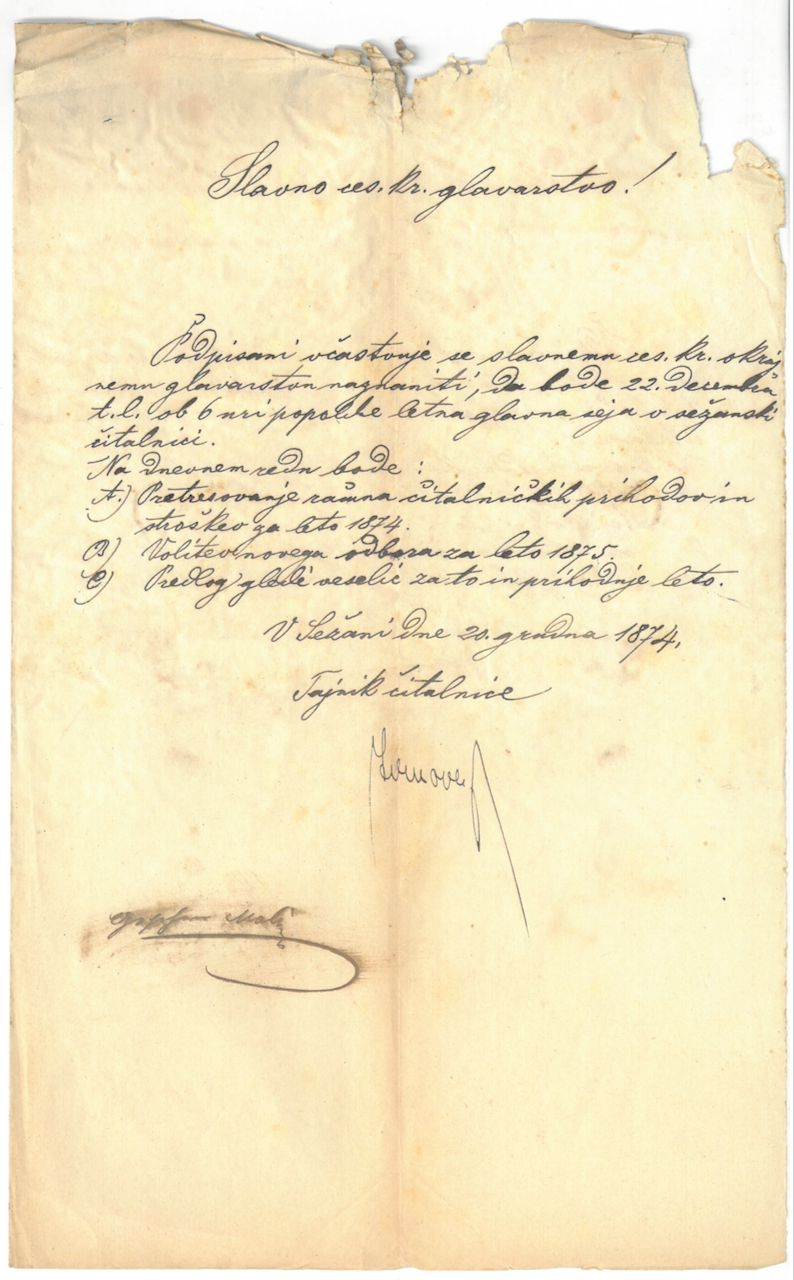 Slavno ces. kr. glavarstvo!
Podpisani včastvuje se slavnemu ces. kr. okraj
nemu glavarstvu naznaniti, da bode 22. decembra
t. l. ob 6 uri popolne letna glavna seja v sežanski
čitalnici.
Na dnevnem redu bode:
A.) Pretresovanje računa čitalničkih prihodov in
stroškov za leto 1874.
B) Volitev novega odbora za leto 1875.
C) Predlog gledé veselic za to in prihodnje leto.
V Sežani dne 20. grudna 1874.
Tajnik čitalnice